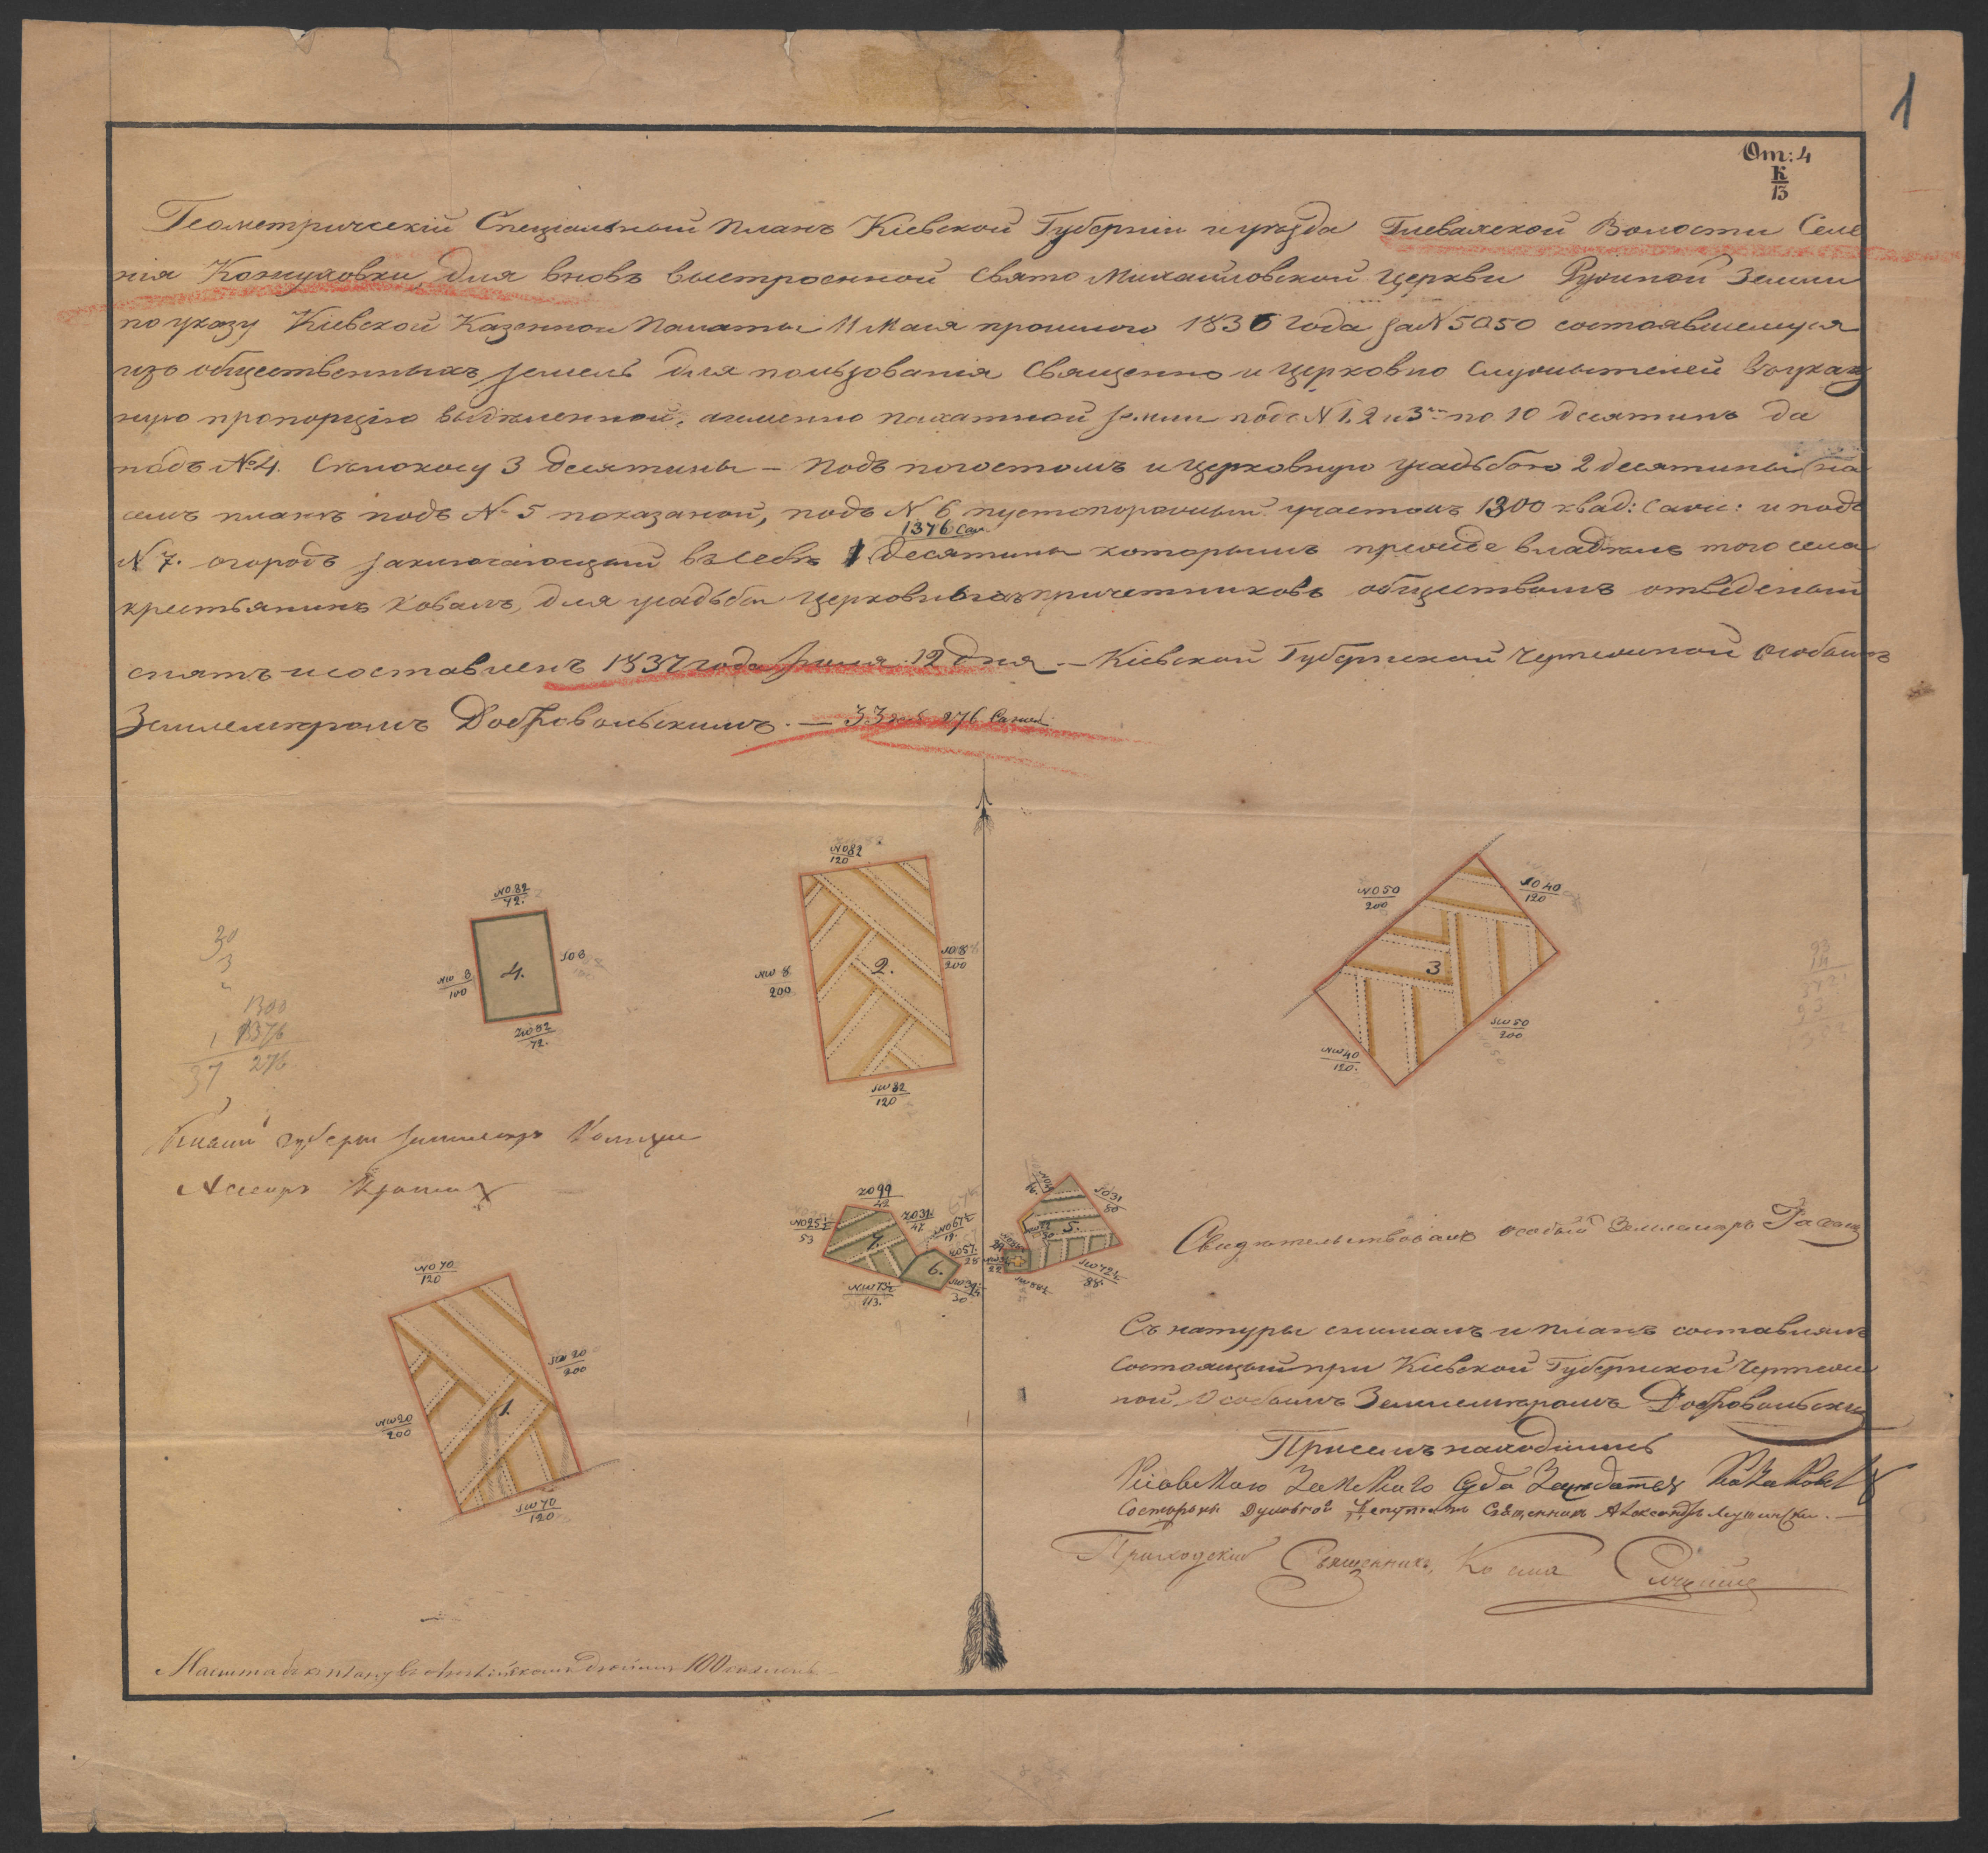 1
От: 4
К
13
Геометрическій Спеціальный планъ Кіевской Губерніи и уѣзда Глевахской Волости Селе
нія Кожуховки, для вновь выстроенной Свято Михайловской Церкви Ружной Земли
по указу Кіевской Казенной Палаты 11 Мая прошлого 1836 года за N 5050 состоявшемуся
изъ общественныхъ земель для пользованія Священно и Церковно Служителей въ указ
ную пропорцію выдѣленной, именно пахатной земли подъ N 1, 2 и 3 по 10 десятинъ да
подъ № 4. Сѣнокосу 3 десятины — подъ погостомъ и церковную усадьбою 2 десятины на
семъ планѣ подъ N 5 показаной, подъ N 6 пустопорожный участокъ 1300 квад: саже: и подъ
1376 саж.
N 7. огородъ заключающій въ себѣ 1 десятины которымъ прежде владѣлъ того села
крестьянинъ Коваль, для усадьбы церковныхъ причетниковъ обществомъ отведеный
снятъ и составленъ 1837 года Іюля 12 дня. — Кіевской Губернской Чертежной Особымъ
Землемѣромъ Добровольскимъ. — 33 276 Сажень
NO 82
72.
NW 8
100
4.
SO 8
72.
NO 82
120
NW 8
200
2.
SO 8
200
SW 82
120
NO 50
200
SO 40
120
3
NW 40
120.
SW 50
200
30
3
1300
1 1376
37 276
губерн землемѣръ
Ассесоръ
99
42
NO 25½
53
47
NO 67½
19
28
7.
6.
NW 73½
113.
30
SO 31
80
5.
SW 72½
88.
22
Свидѣтельствовалъ особый Землемѣръ
NO 70
120
NW 20
200
1.
20
200
SW 70
120
Съ натуры снималъ и планъ составлялъ
состоящый при Кіевской Губернской Чертеж
ной Особымъ Землемѣромъ Добровольски
При семъ находились
Кіевского Земского Суда Засѣдатель
Состороны Духовной Депутатъ Священникъ Александръ
Приходскій Священникъ, Косма
Масштабъ къ плану въ Англійскомъ дюймѣ 100 сажень